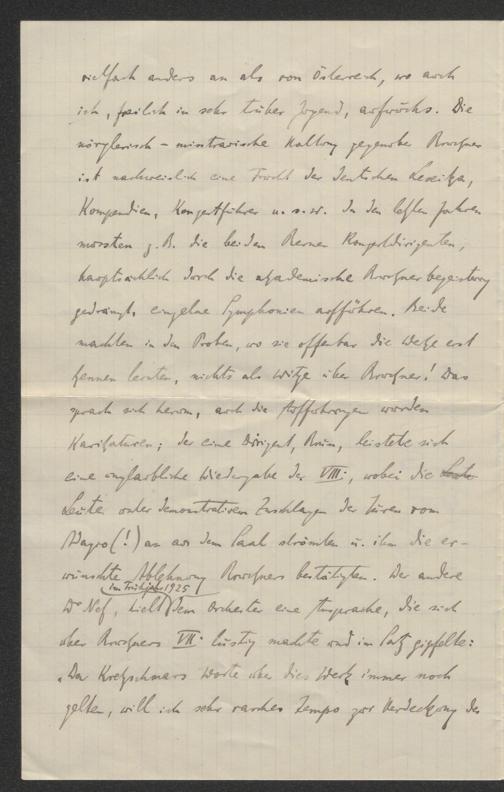 vielfach anders an als von Österreich, wo auch
ich, freilich in sehr trüber Jugend, aufwuchs. Die
nörglerisch-misstrauische Haltung gegenüber Bruckner
ist nachweislich eine Frucht der deutschen Lexika,
Kompendien, Konzertführer u. s. w. In den letzten Jahren
mussten z. B. die beiden Berner Konzertdirigenten,
hauptsächlich durch die akademische Brucknerbegeisterung
gedrängt, einzelne Symphonien aufführen. Beide
machten in den Proben, wo sie offenbar die Werke erst
kennen lernten, nichts als Witze über Bruckner! Das
sprach sich herum, auch die Aufführungen wurden
Karikaturen; der eine Dirigent, Brun, leistete sich
eine unglaubliche Wiedergabe der VIII., wobei die Leute
Leute unter demonstrativem Zuschlagen der Türen vom
Adagio (!) an aus dem Saal strömten u. ihm die er-
wünschte Ablehnung Bruckners bestätigten. Der andere
im Frühjahr 1925
Dr Nef, hielt dem Orchester eine Ansprache, die sich
über Bruckners VII. lustig machte und im Satz gipfelte:
„Da Kretzschmars Worte über dies Werk immer noch
gelten, will ich sehr rasches Tempo zur Verdeckung der